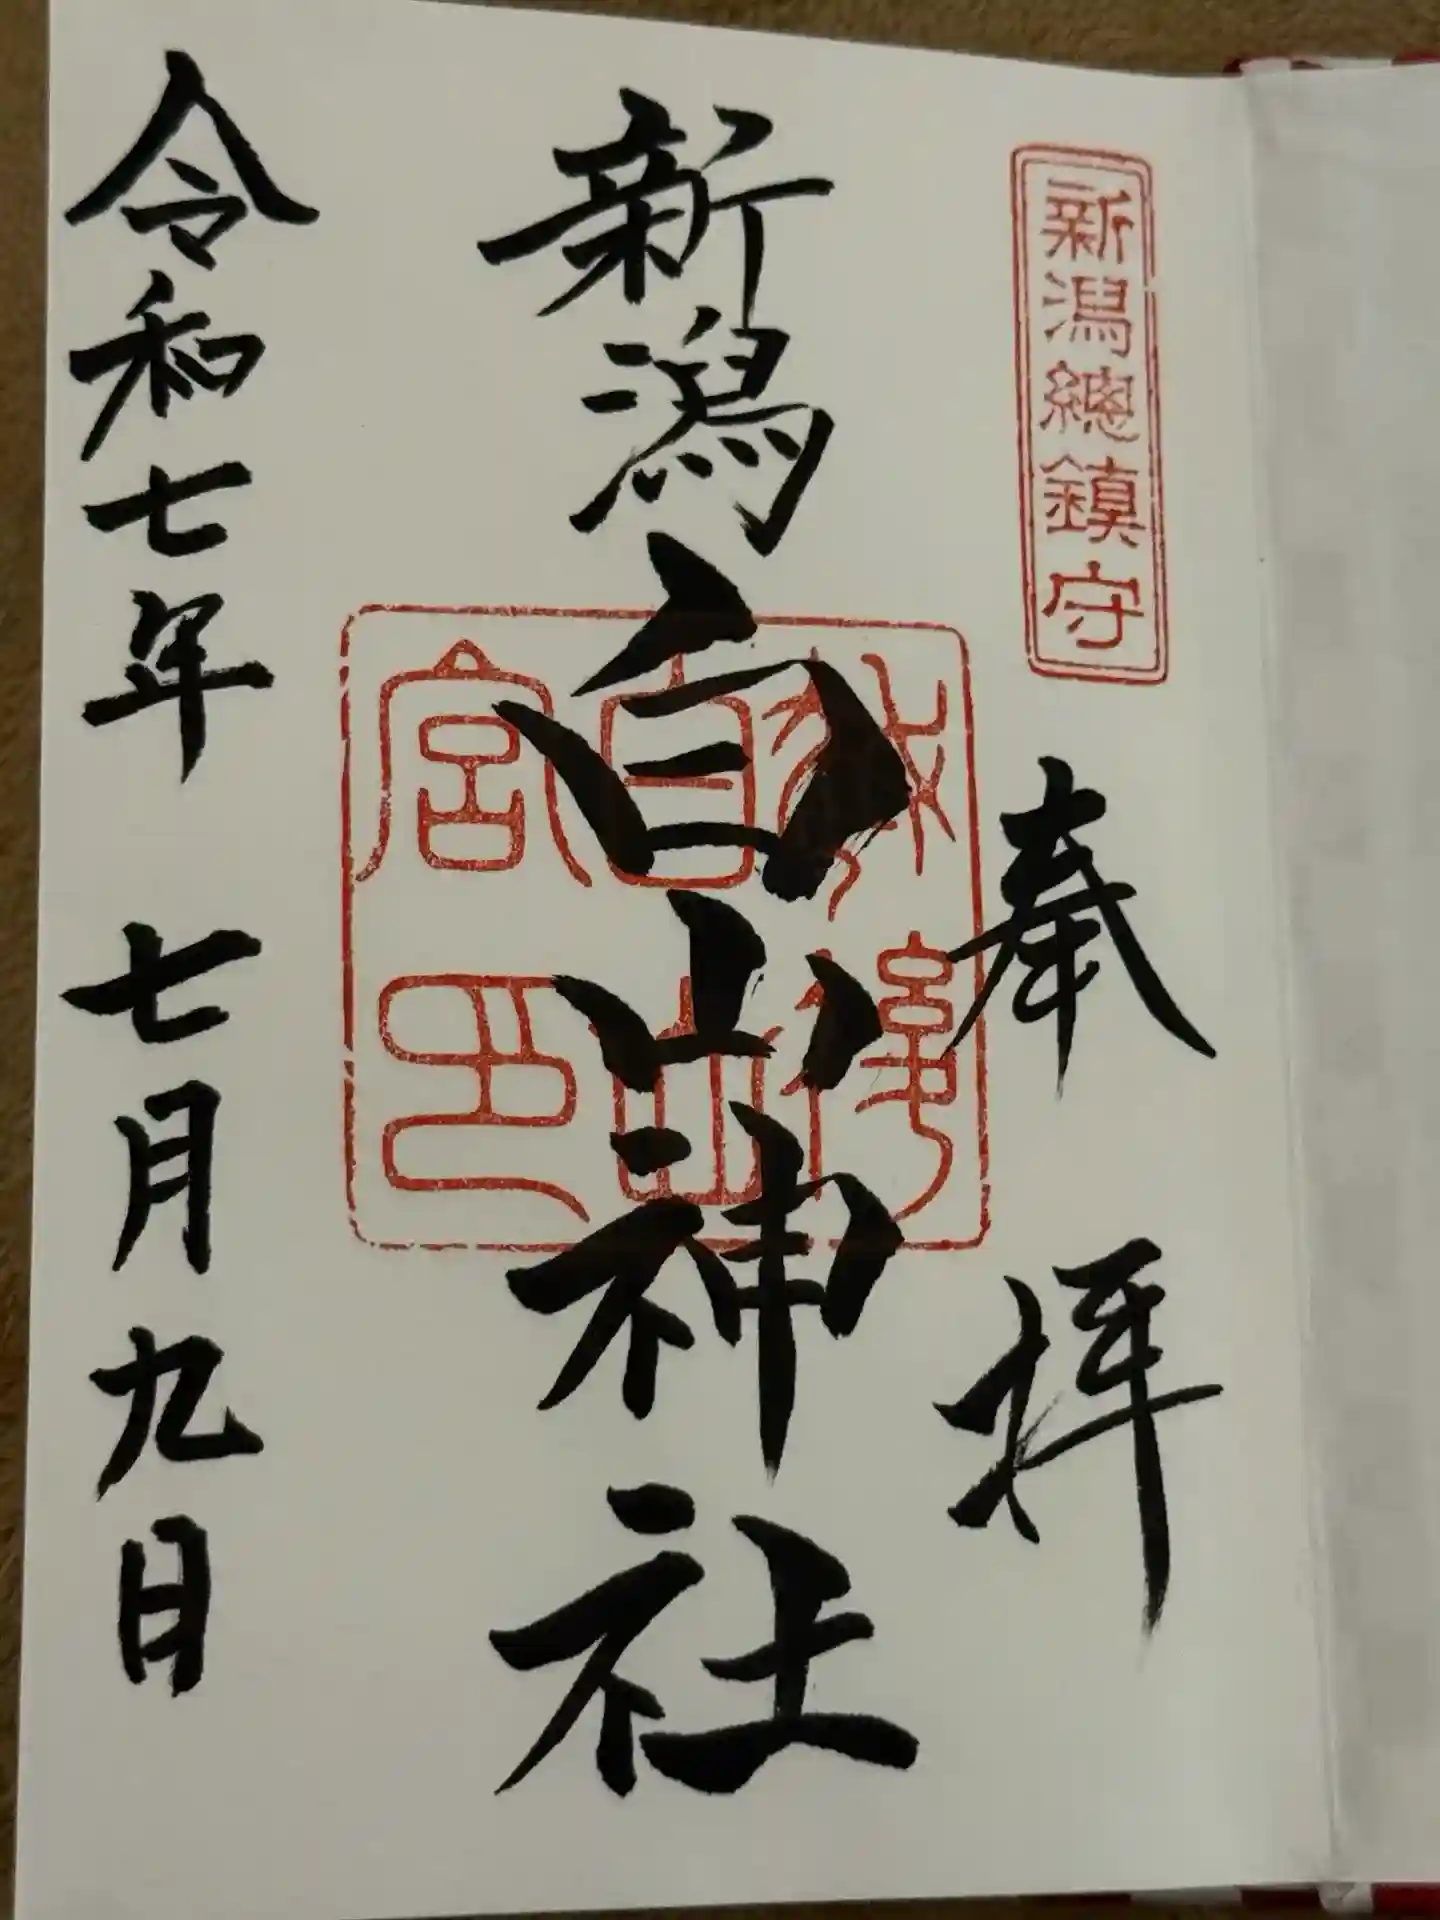 新潟總鎮守
奉拝
新潟白山神社
白山
宮印
令和七年 七月九日